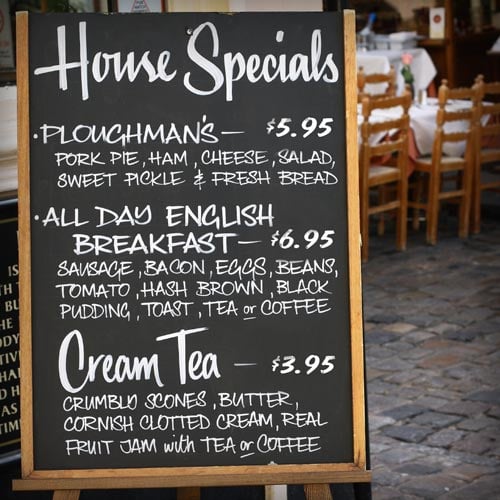 House Specials
·PLOUGHMAN'S — $5.95
PORK PIE, HAM, CHEESE, SALAD,
SWEET PICKLE & FRESH BREAD
·ALL DAY ENGLISH
BREAKFAST — $6.95
SAUSAGE, BACON, EGGS, BEANS,
TOMATO, HASH BROWN, BLACK
PUDDING, TOAST, TEA or COFFEE
Cream Tea — $3.95
CRUMBLD SCONES, BUTTER,
CORNISH CLOTTED CREAM, REAL
FRUIT JAM with TEA or COFFEE